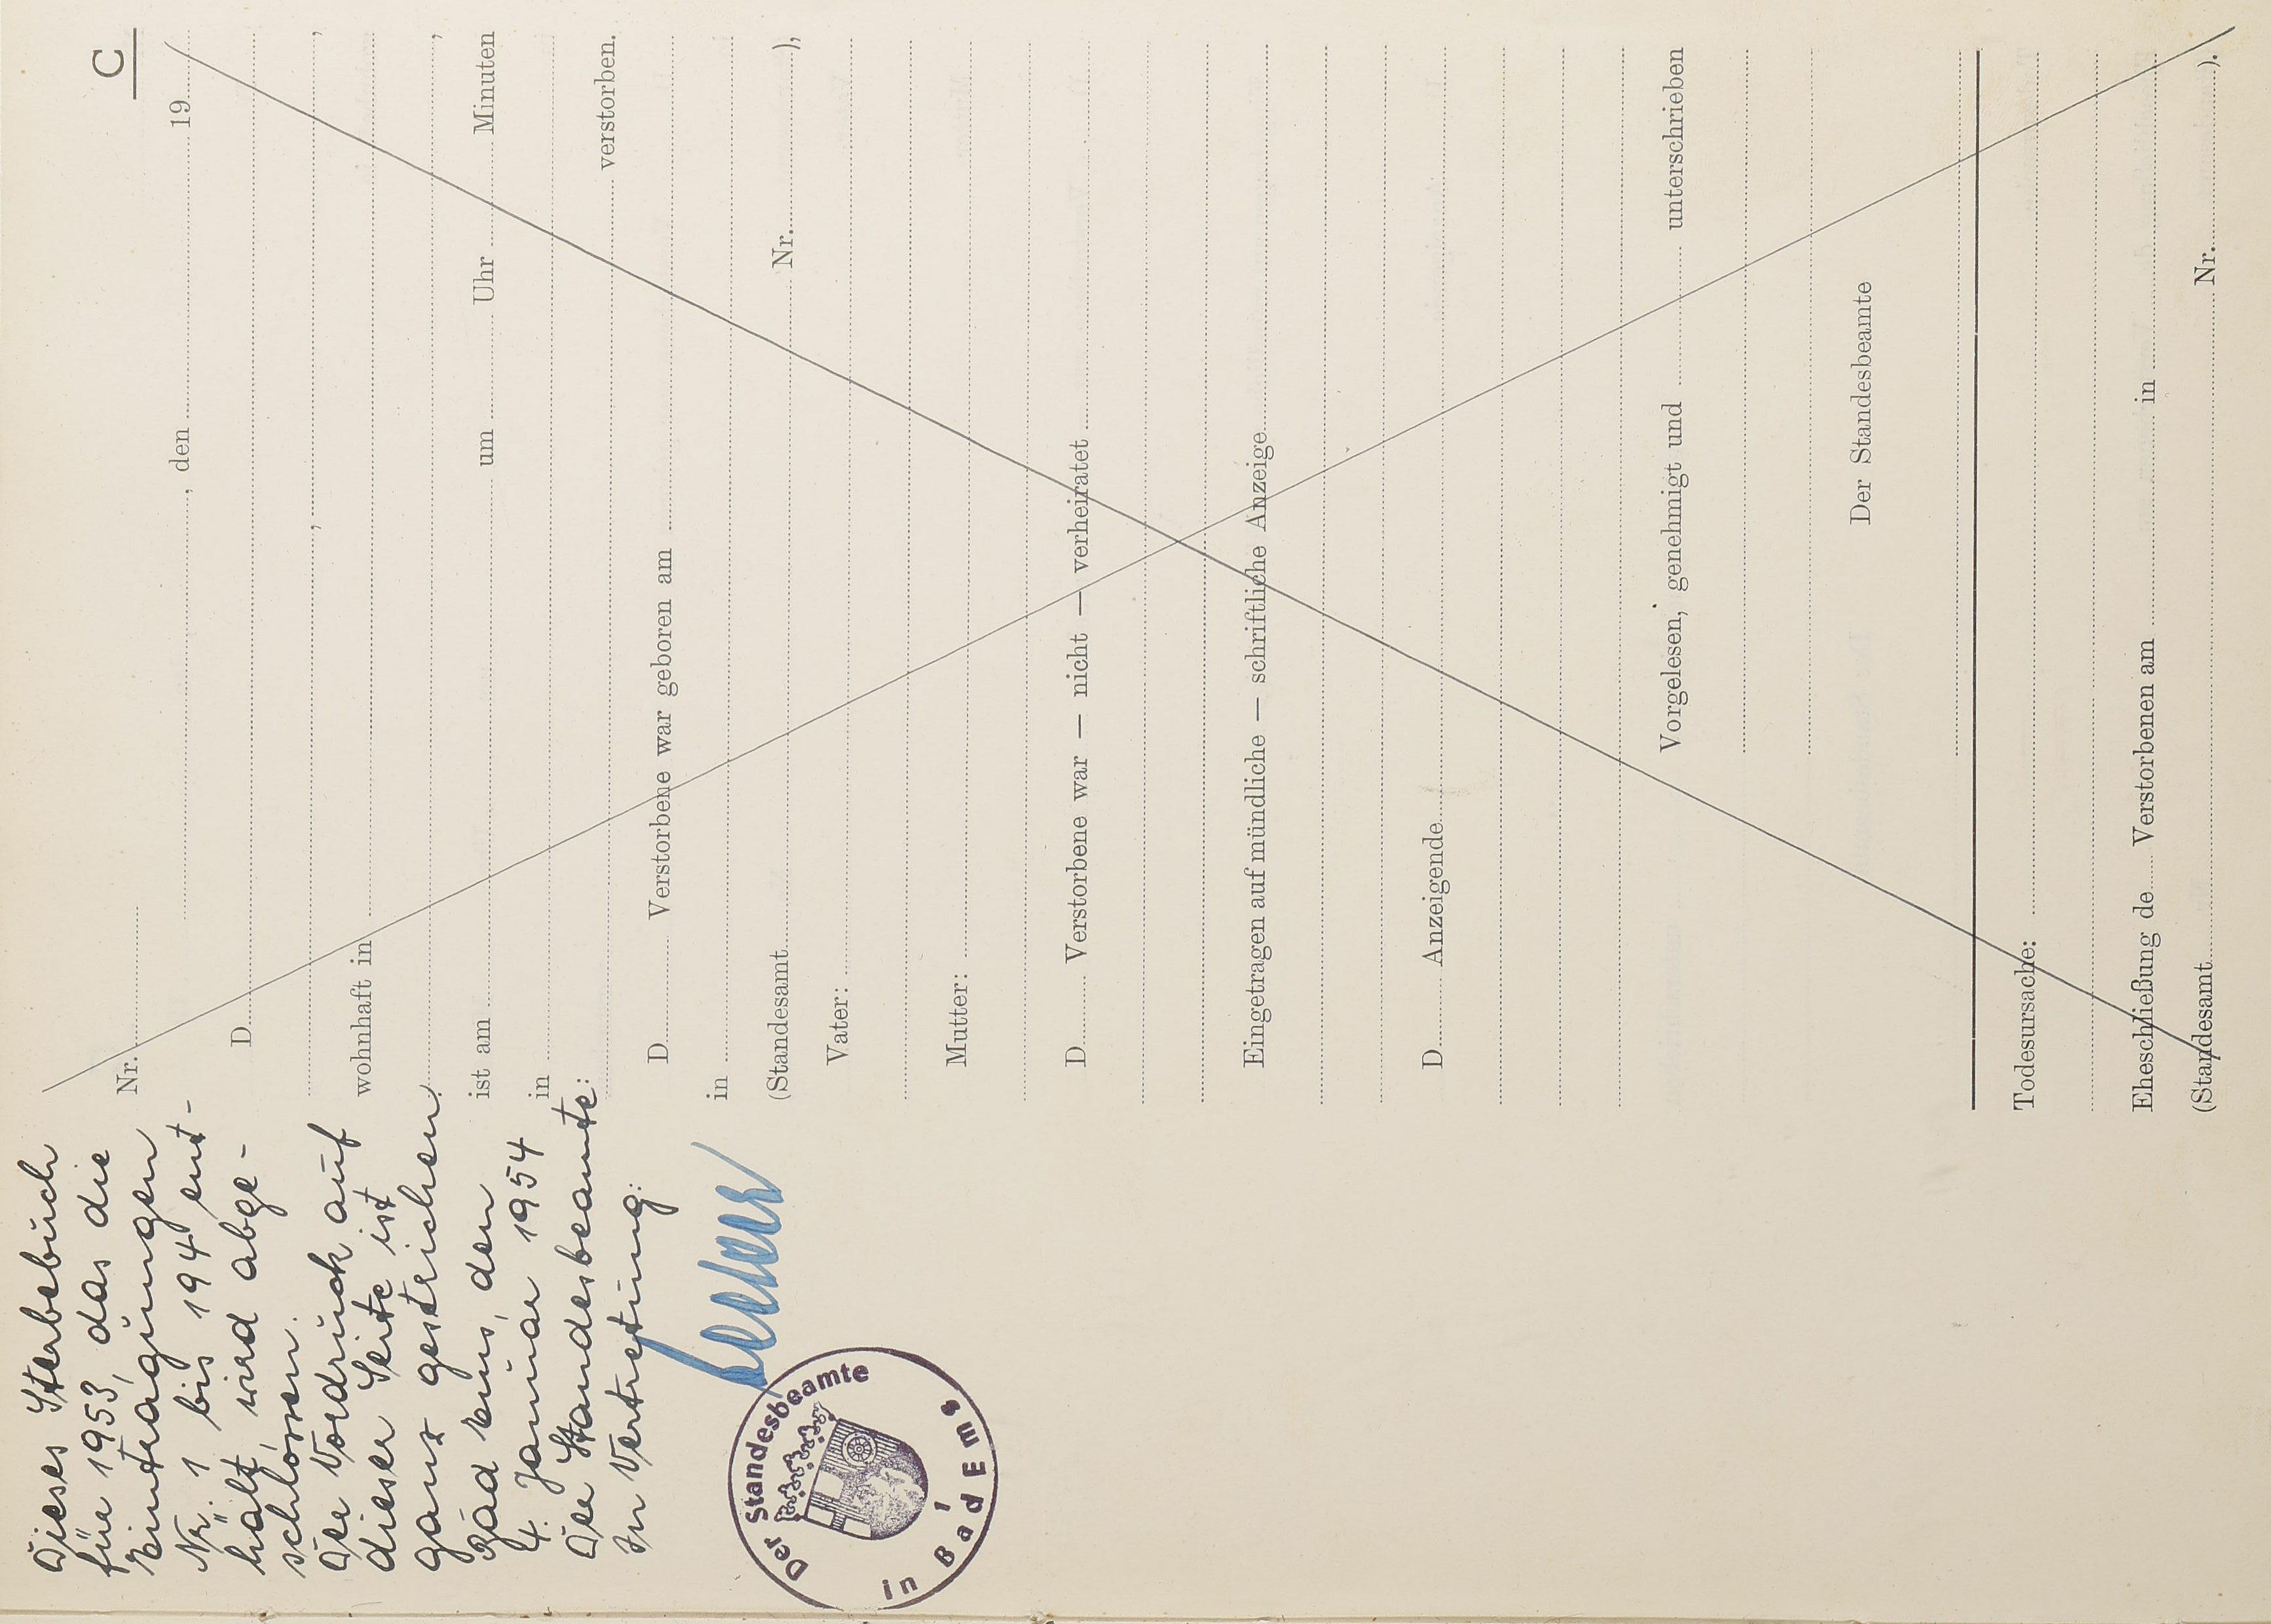 C
Dieses Sterbebuch
für 1953, das die
Eintragungen
Nr. 1 bis 194 ent-
hält, wird abge-
schlossen.
Der Vordruck auf
dieser Seite ist
ganz gestrichen.
Bad Ems, den
4. Januar 1954
Der Standesbeamte:
In Vertretung:
Der Standesbeamte
in Bad Ems
1
Nr.
, den 19
D
,
,
wohnhaft in
,
ist am um Uhr Minuten
in
verstorben.
D Verstorbene war geboren am
in
(Standesamt Nr. ),
Vater:
Mutter:
D Verstorbene war — nicht — verheiratet
Eingetragen auf mündliche — schriftliche Anzeige
D Anzeigende
Vorgelesen, genehmigt und unterschrieben
Der Standesbeamte
Todesursache:
Eheschließung de Verstorbenen am in
(Standesamt Nr. ).